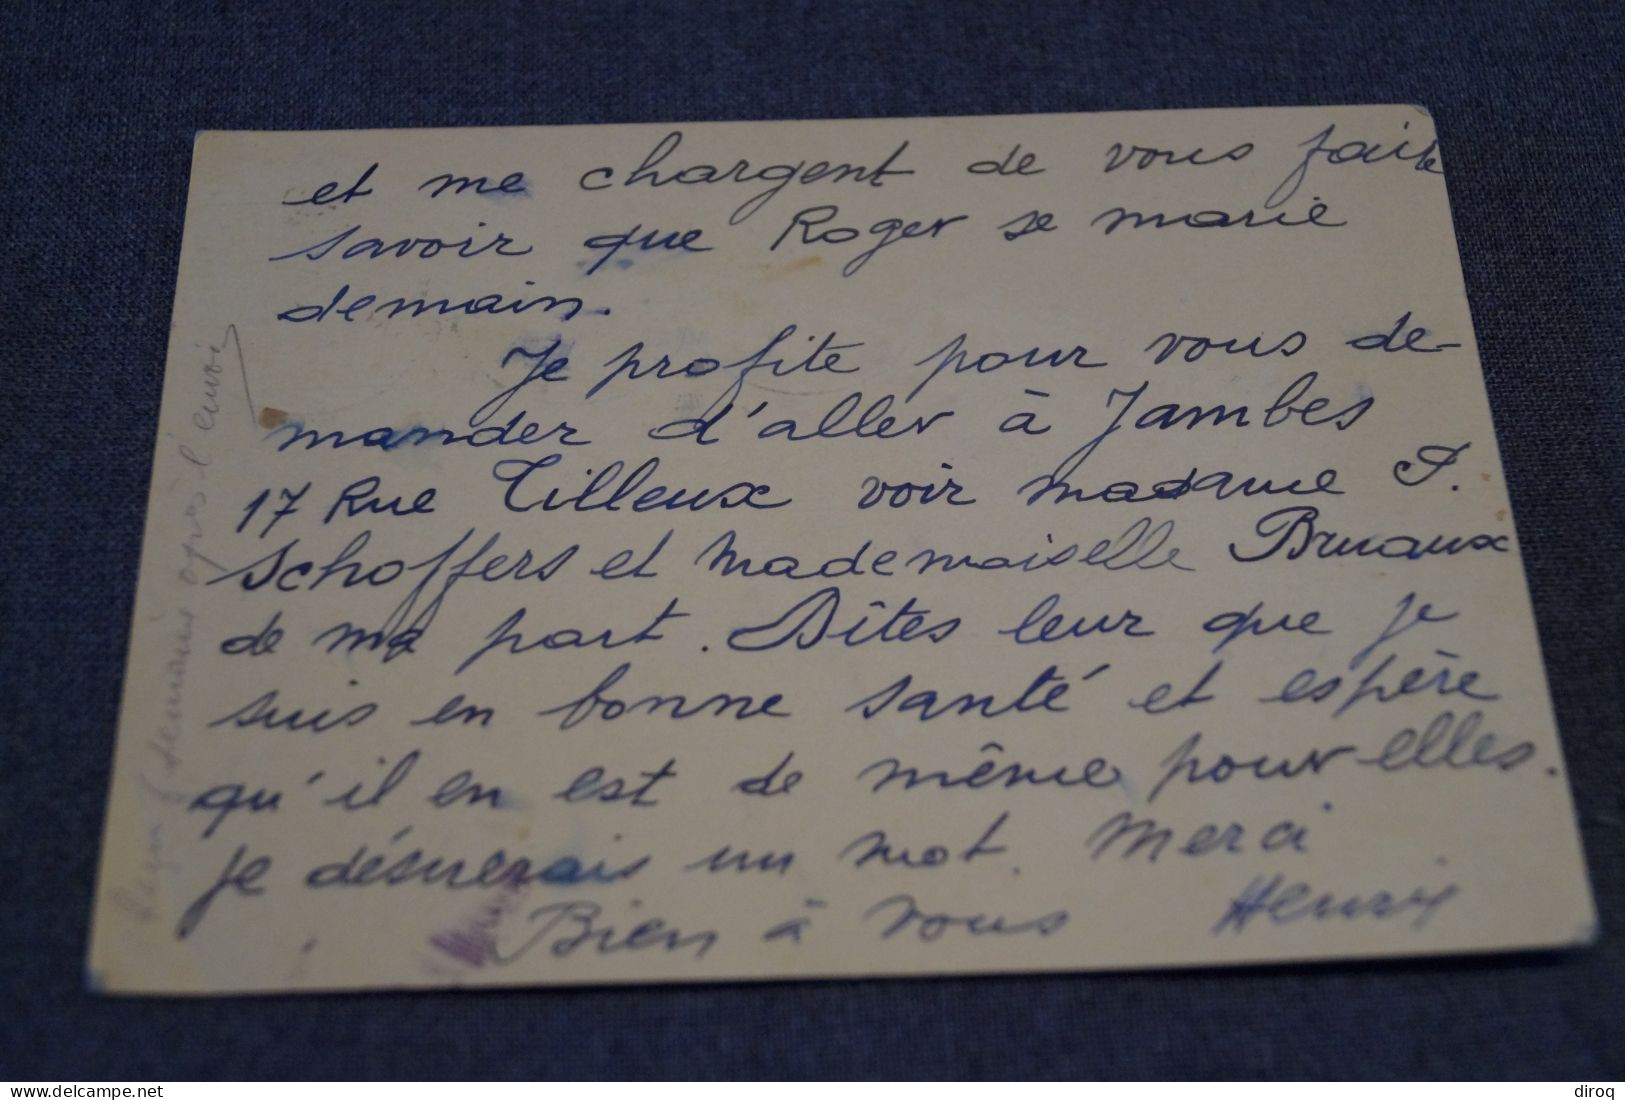 et me chargent de vous faire
savoir que Roger se marie
demain.
Je profite pour vous de-
mander d'aller à Jambes
17 Rue Tilleux voir madame P.
Schoffers et Mademoiselle Bruaux
de ma part. Dîtes leur que je
suis en bonne santé et espère
qu'il en est de même pour elles.
Je désirerais un mot. Merci
Bien à vous Henri
semaine après l'envoi
delcampe.net
diroq